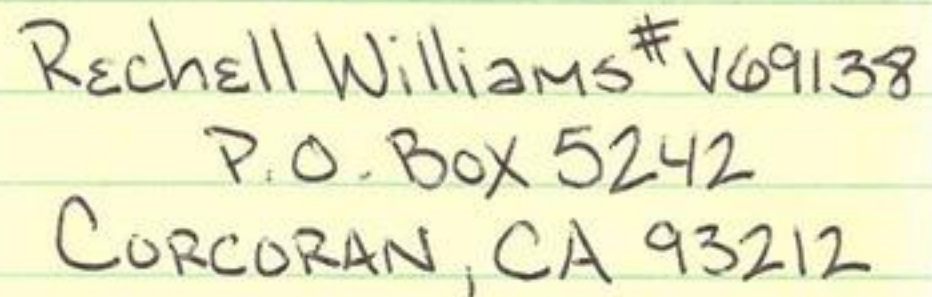 Rechell Williams # V69138
P.O. Box 5242
CORCORAN, CA 93212